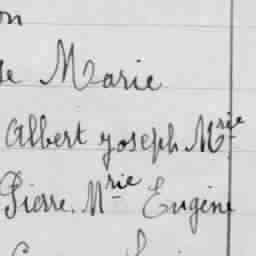 on
se Marie
Albert Joseph Mrie
Pierre. Mrie Eugène